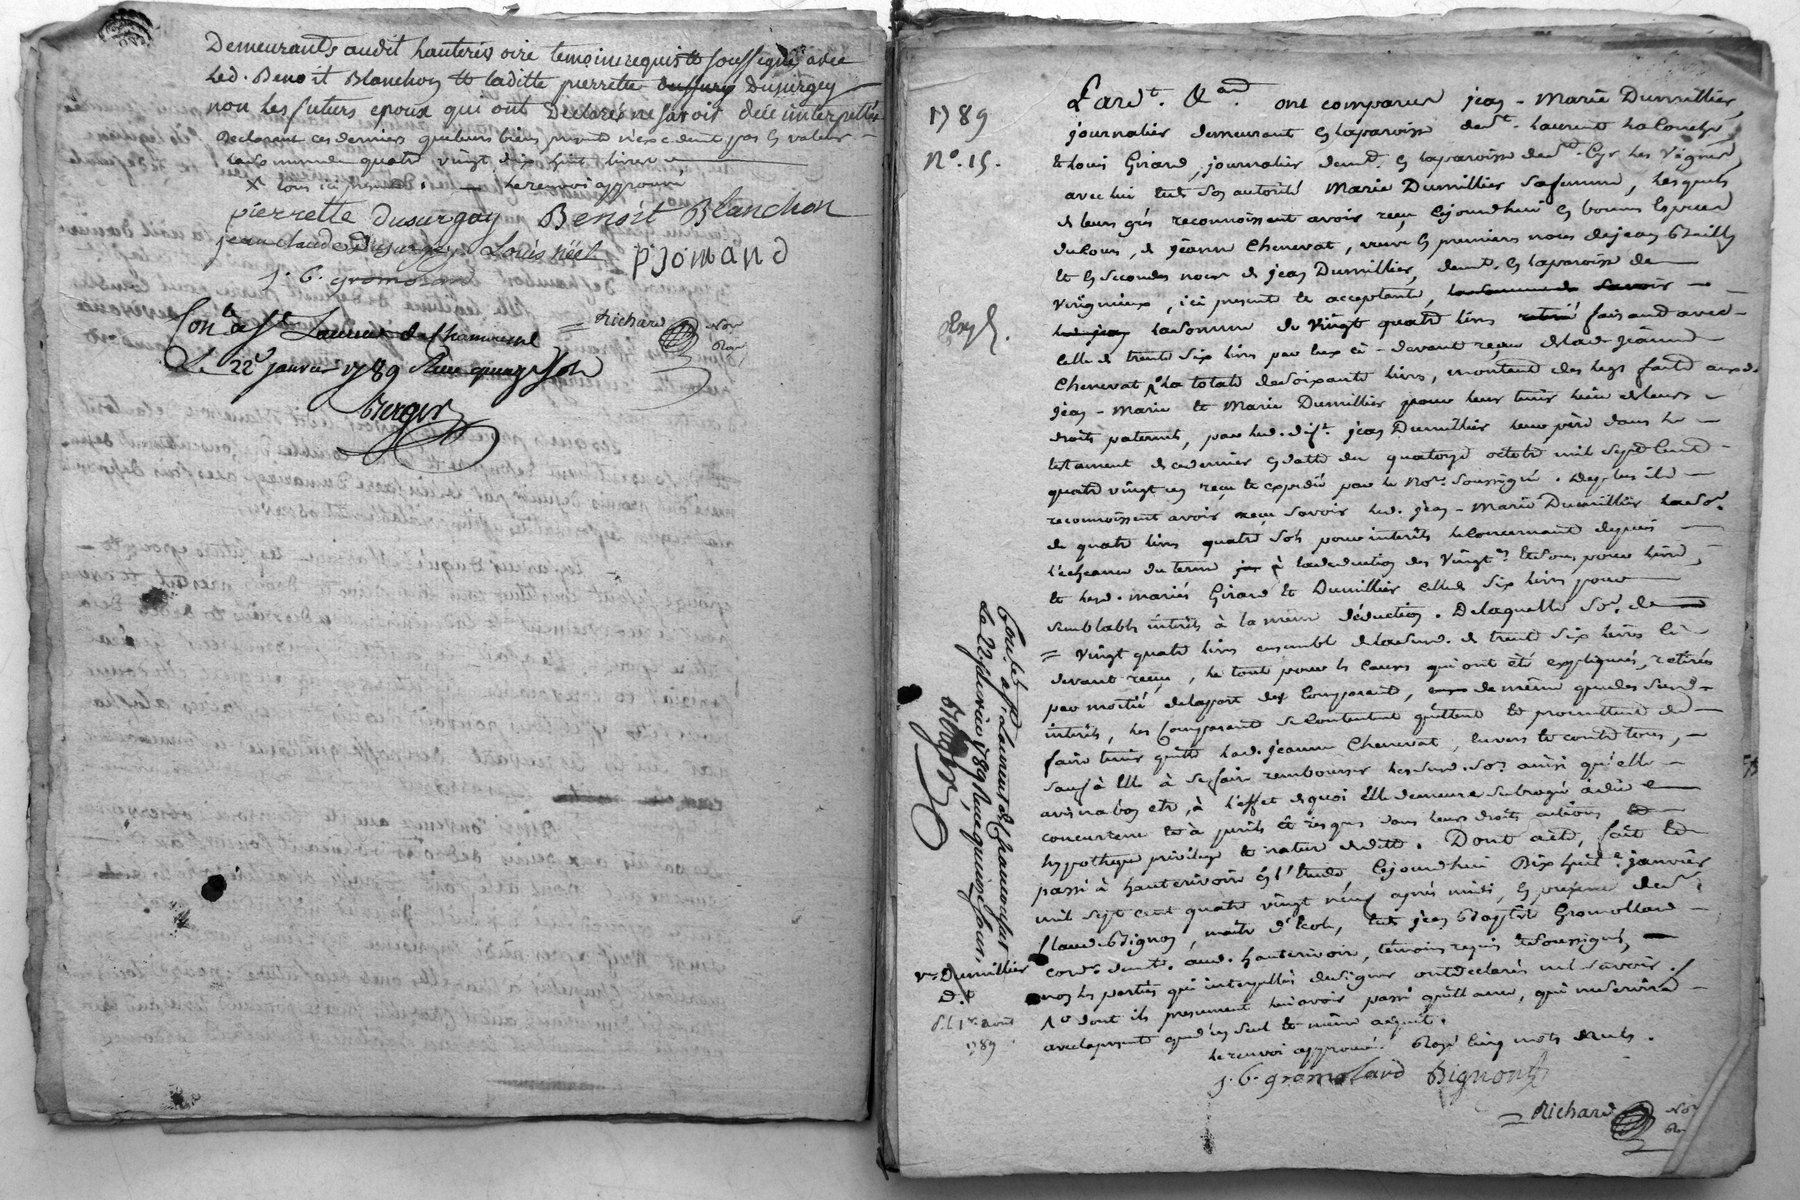 Demeurants audit hauterivoire temoins requis et soussignés avec
led. Benoit Blanchon et laditte pierrette Dusurgey
non les futurs epoux qui ont Declaré ne savoir de ce interpellés
Declarent ces dernier que leurs biens n'excedent pas la valeur
de la somme de quatre vingt dix huit livres
X tous ici présents le renvoi approuvé
pierrette dusurgay Benoit Blanchon
jean claude Dusurgey Louis néel pjomand
j. b. gromolard
Richard Nore Roal
Con.le à St Laurent de chamousset
Le 22e janvier 1789 Reçu quinze sols
Berger
1789
N°. 15.
Pardt. &ant. ont comparu jean-Marie Dumillier,
journalier demeurant en la paroisse de st. Laurent
et Louis Girard, journalier demt. en la paroisse de st. Cyr les Vignes
avec lui et de son autorité Marie Dumillier sa femme, lesquels
de leurs grés reconnoissent avoir reçu cejourdhui en bonnes Especes
du Cours, de jeanne Chenevat, veuve en premiers noces de jean
et en secondes noces de jean Dumillier, demt. en la paroisse de
Virigneux, ici presente et acceptante,
la somme de Vingt quatre livres faisant avec
celle de trente six livres par eux ci-devant reçue de lad. jeanne
Chenevat /° la totale de soixante livres, montant des legs faits auxd.
jean-Marie et Marie Dumillier pour leur tenir lieu de leurs
droits paternels, par led. deft. jean Dumillier leur père dans le
testament de ce dernier en datte du quatorze octobre mil sept cent
quatre vingt un reçu et expedié par le nore. soussigné. De plus ils
reconnoissent avoir reçu savoir led. jean-Marie Dumillier la so.e
de quatre livres quatre sols pour intérêts le concernant depuis
l'echeance du terme à la déduction des Vingt.es et sous pour livre,
et lesd. mariés Girard et Dumillier celle de six livres pour
semblable intérêts à la même déduction. De laquelle so.e de
= Vingt quatre livres ensemble de la susd. de trente six livres ci-
devant reçue, le tout pour les causes qui ont été expliquées, retirées
par moitié de la part des Comparants, de même que des susd.
intérêts, les Comparants se contentent quittent et promettent de
faire tenir quitte lad. jeanne Chenevat, envers et contre tous,
sauf à elle à se faire rembourser lesd. so.es ainsi qu'elle
avisera bon etre, à l'effet de quoi elle demeure subrogée à due
concurrence et à perils et risques dans leurs droits actions
hypotheque privilege et nature de dette. Dont acte, fait et
passé à hauterivoire en l'Etude cejourdhui Dix huit janvier
mil sept cent quatre vingt neuf après midi, en presence de sr.
Claude Bignon, maitre d'Ecole, et de jean Baptiste Gromollard
cord.r demt. aud. hauterivoire, témoins requis et soussignés,
non les parties qui interpellés de signer ont declarés ne le savoir.
/° dont ils presument lui avoir passé quittance, qui ne servira
avec la presente que d'un seul et même acquit.
le renvoi approuvé. Rayé cinq mots nuls.
j. b. gromolard Bignon
Richard Nore Roal
Con.lé à St. Laurent de Chamousset
Le 22 janvier 1789 Reçu quinze sous,
Berger
Vve Dumillier
D. p
1er. aout
1789